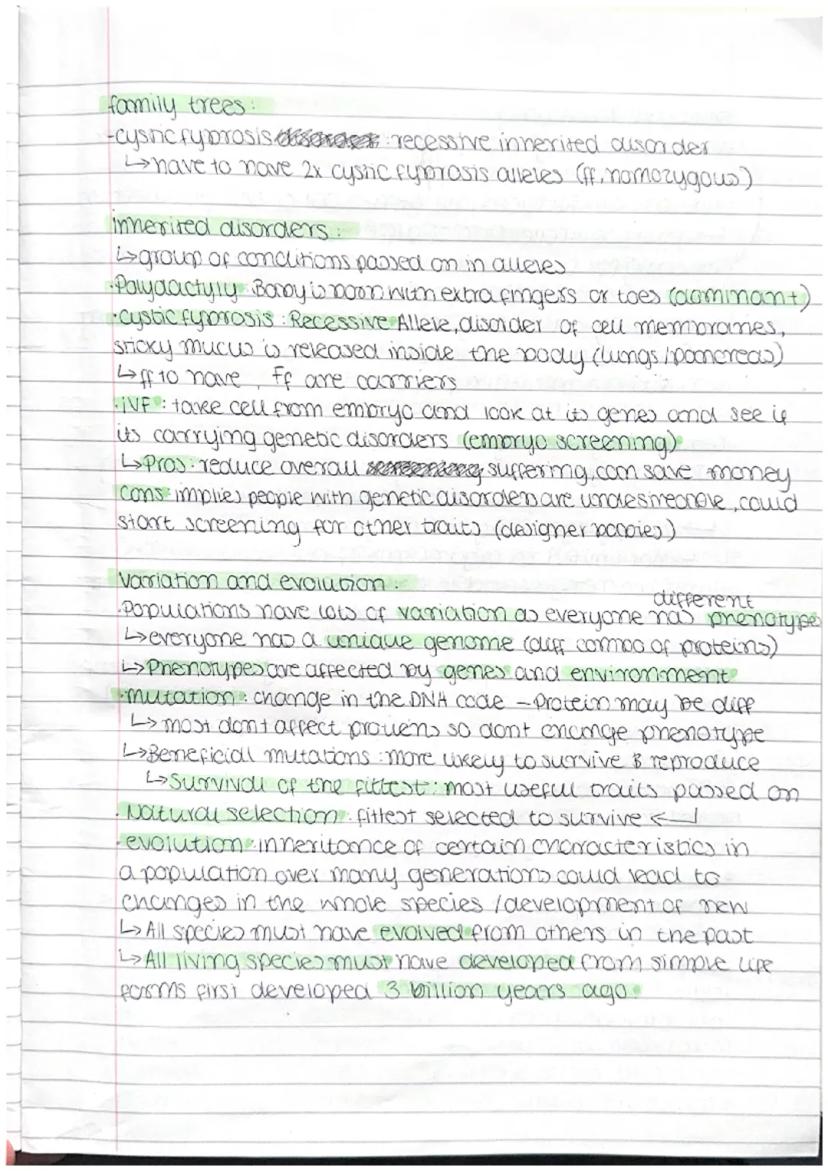 family trees:
-cystic fybrosis : recessive inherited disorder
↳have to have 2x cystic fybrosis alleles (ff, homozygous)
inherited disorders:
↳group of conditions passed on in alleles
·Polydactyly: Baby is born with extra fingers or toes (dominant)
·cystic fybrosis : Recessive Allele, disorder of cell membranes,
sticky mucus is released inside the body (lungs/pancreas)
↳ff to have, Ff are carriers
·iVF : take cell from embryo and look at its genes and see if
its carrying genetic disorders (embryo screening)
↳Pros: reduce overall suffering, can save money
cons implies people with genetic disorders are undesireable, could
start screening for other traits (designer babies)
variation and evolution:
different
·Populations have lots of variation as everyone has phenotype
↳everyone has a unique genome (diff combo of proteins)
↳Phenotypes are affected by genes and environment
·mutation: change in the DNA code - Protein may be diff
↳most dont affect protiens so dont change phenotype
↳Beneficial mutations: more likely to survive & reproduce
↳Survival of the fittest: most useful traits passed on
·Natural selection: fittest selected to survive ←
·evolution: inheritance of certain characteristics in
a population over many generations could lead to
changes in the whole species /development of new
↳All species must have evolved from others in the past
↳All living species must have developed from simple life
forms first developed 3 billion years ago.